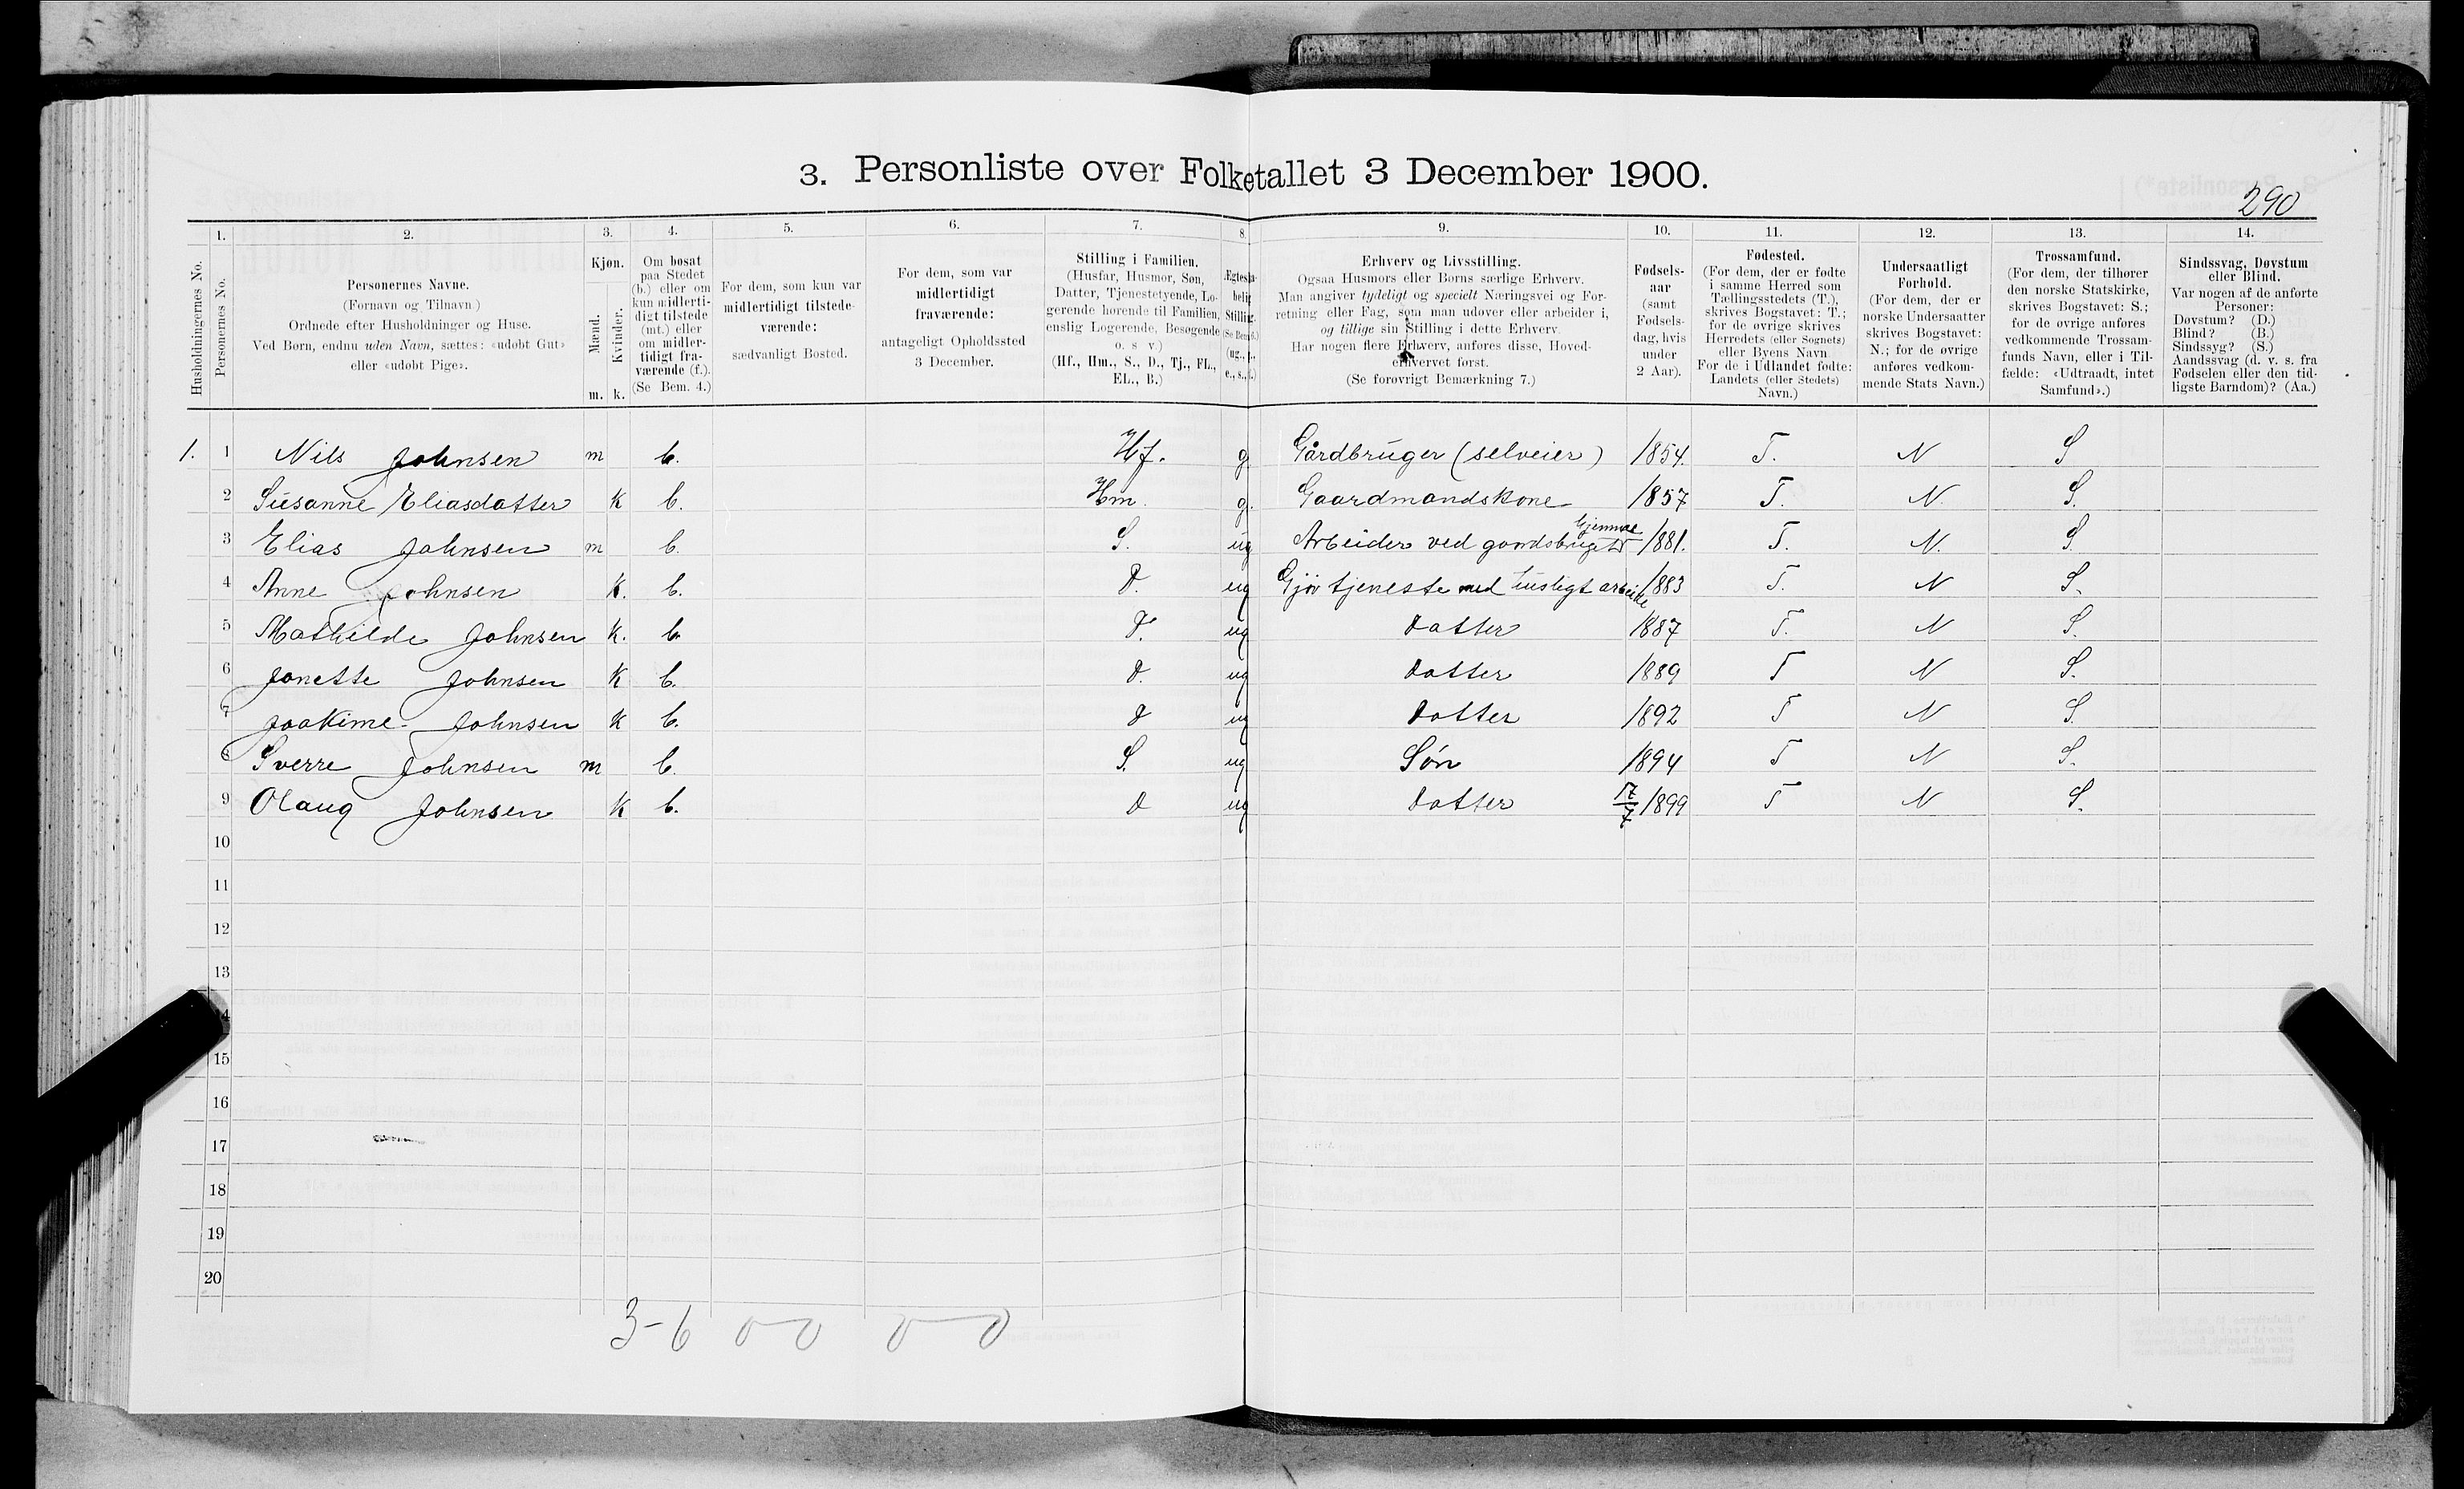 3. Personliste over Folketallet 3 December 1900.
290
1. 2. 3. 4. 5. 6. 7. 8. 9. 10. 11. 12. 13. 14.
Husholdningernes No.
Personernes No.
Personernes Navne.
(Fornavn og Tilnavn)
Ordnede efter Husholdninger og Huse.
Ved Børn, endnu uden Navn, sættes: «udøbt Gut»
eller «udøbt Pige».
Kjøn.
Mænd.
Kvinder.
m. k.
Om bosat
paa Stedet
(b.) eller om
kun midlerti-
digt tilstede
(mt.) eller
om midler-
tidigt fra-
værende (f.).
(Se Bem. 4.)
For dem, som kun var
midlertidigt tilstede-
værende:
sædvanligt Bosted.
For dem, som var
midlertidigt
fraværende:
antageligt Opholdssted
3 December.
Stilling i Familien.
(Husfar, Husmor, Søn,
Datter, Tjenestetyende, Lo-
gerende hørende til Familien,
enslig Logerende, Besøgende
o. s v.)
(Hf., Hm., S., D., Tj., FL.,
EL., B.)
Ægteska-
belig
Stilling.
(Se Bem. 6.)
(ug., g.,
e., s., f.)
Erhverv og Livsstilling.
Ogsaa Husmors eller Børns særlige Erhverv.
Man angiver tydeligt og specielt Næringsvei og For-
retning eller Fag, som man udøver eller arbeider i,
og tillige sin Stilling i dette Erhverv.
Har nogen flere Erhverv, anføres disse, Hoved-
erhvervet først.
(Se forøvrigt Bemærkning 7.)
Fødsels-
aar
(samt
Fødsels-
dag, hvis
under
2 Aar).
Fødested.
(For dem, der er fødte
i samme Herred som
Tællingsstedets (T.),
skrives Bogstavet: T.;
for de øvrige skrives
Herredets (eller Sognets)
eller Byens Navn
For de i Udlandet fødte:
Landets (eller Stedets)
Navn.)
Undersaatligt
Forhold.
(For dem, der er
norske Undersaatter
skrives Bogstavet:
N.; for de øvrige
anføres vedkom-
mende Stats Navn.)
Trossamfund.
(For dem, der tilhører
den norske Statskirke,
skrives Bogstavet: S.;
for de øvrige anføres
vedkommende Trossam-
funds Navn, eller i Til-
fælde: «Udtraadt, intet
Samfund».)
Sindssvag, Døvstum
eller Blind.
Var nogen af de anførte
Personer:
Døvstum? (D.)
Blind? (B.)
Sindssyg? (S.)
Aandssvag (d. v. s. fra
Fødselen eller den tid-
ligste Barndom)? (Aa.)
1. 1 Nils Johnsen m b. Hf. g. Gårdbruger (selveier) 1854. T. N S
2 Susanne Eliasdatter K b. Hm. g. Gaardmandskone 1857 T. N. S.
3 Elias Johnsen m b. S. ug Arbeider ved gaardsbruget 1881. T. N. S.
4 Anne Johnsen K. b. D. ug Gjør tjeneste med husligt arbeide 1883 T. N S.
5 Mathilde Johnsen K. b. D. ug Datter 1887 T. N S.
6 Jonette Johnsen K b. D. ug Datter 1889 T N S.
7 Joakime Johnsen K b. D ug Datter 1892 T N S.
8 Sverre Johnsen m b. S. ug Søn 1894 T N S.
9 Olaug Johnsen K b. D ug Datter 17/7 1899 T N S.
10
11
12
13
4
15
16
17
18
19
20
3-6 0 0 0 0